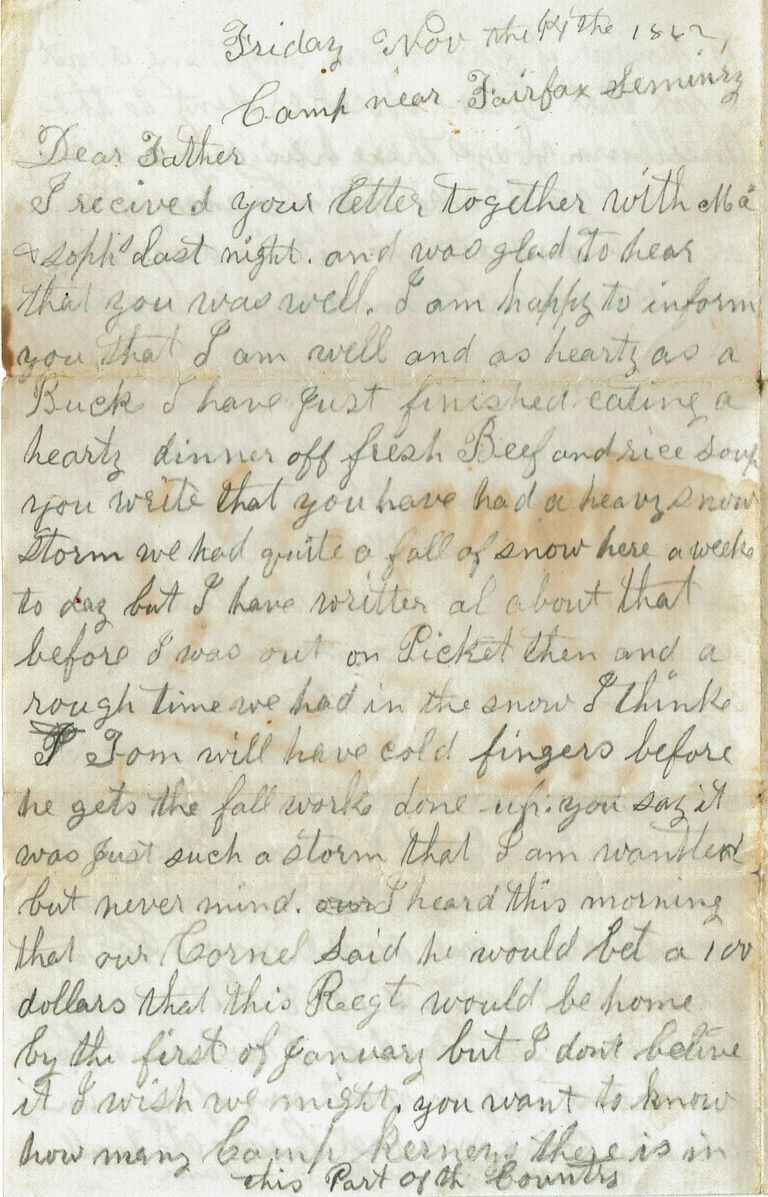 Friday Nov the 14 the 1862
Camp near Fairfax Seminry
Dear Father
I recived your letter together with Ma
& soph's last night. and was glad to hear
that you was well. I am happy to inform
you that I am well and as hearty as a
Buck I have Just finished eating a
hearty dinner off fresh Beef and rice soup
you write that you have had a heavy snow
storm we had quite a fall of snow here a week
to day but I have written al about that
before I was out on Picket then and a
rough time we had in the snow I think
Tom will have cold fingers before
he gets the fall work done up. you say it
was Just such a storm that I am wanted
but never mind. I heard this morning
that our Cornel Said he would bet a 100
dollars that this Regt would be home
by the first of January but I dont belive
it I wish we might. you want to know
how many Camp Kerneys there is in
this Part of th Country